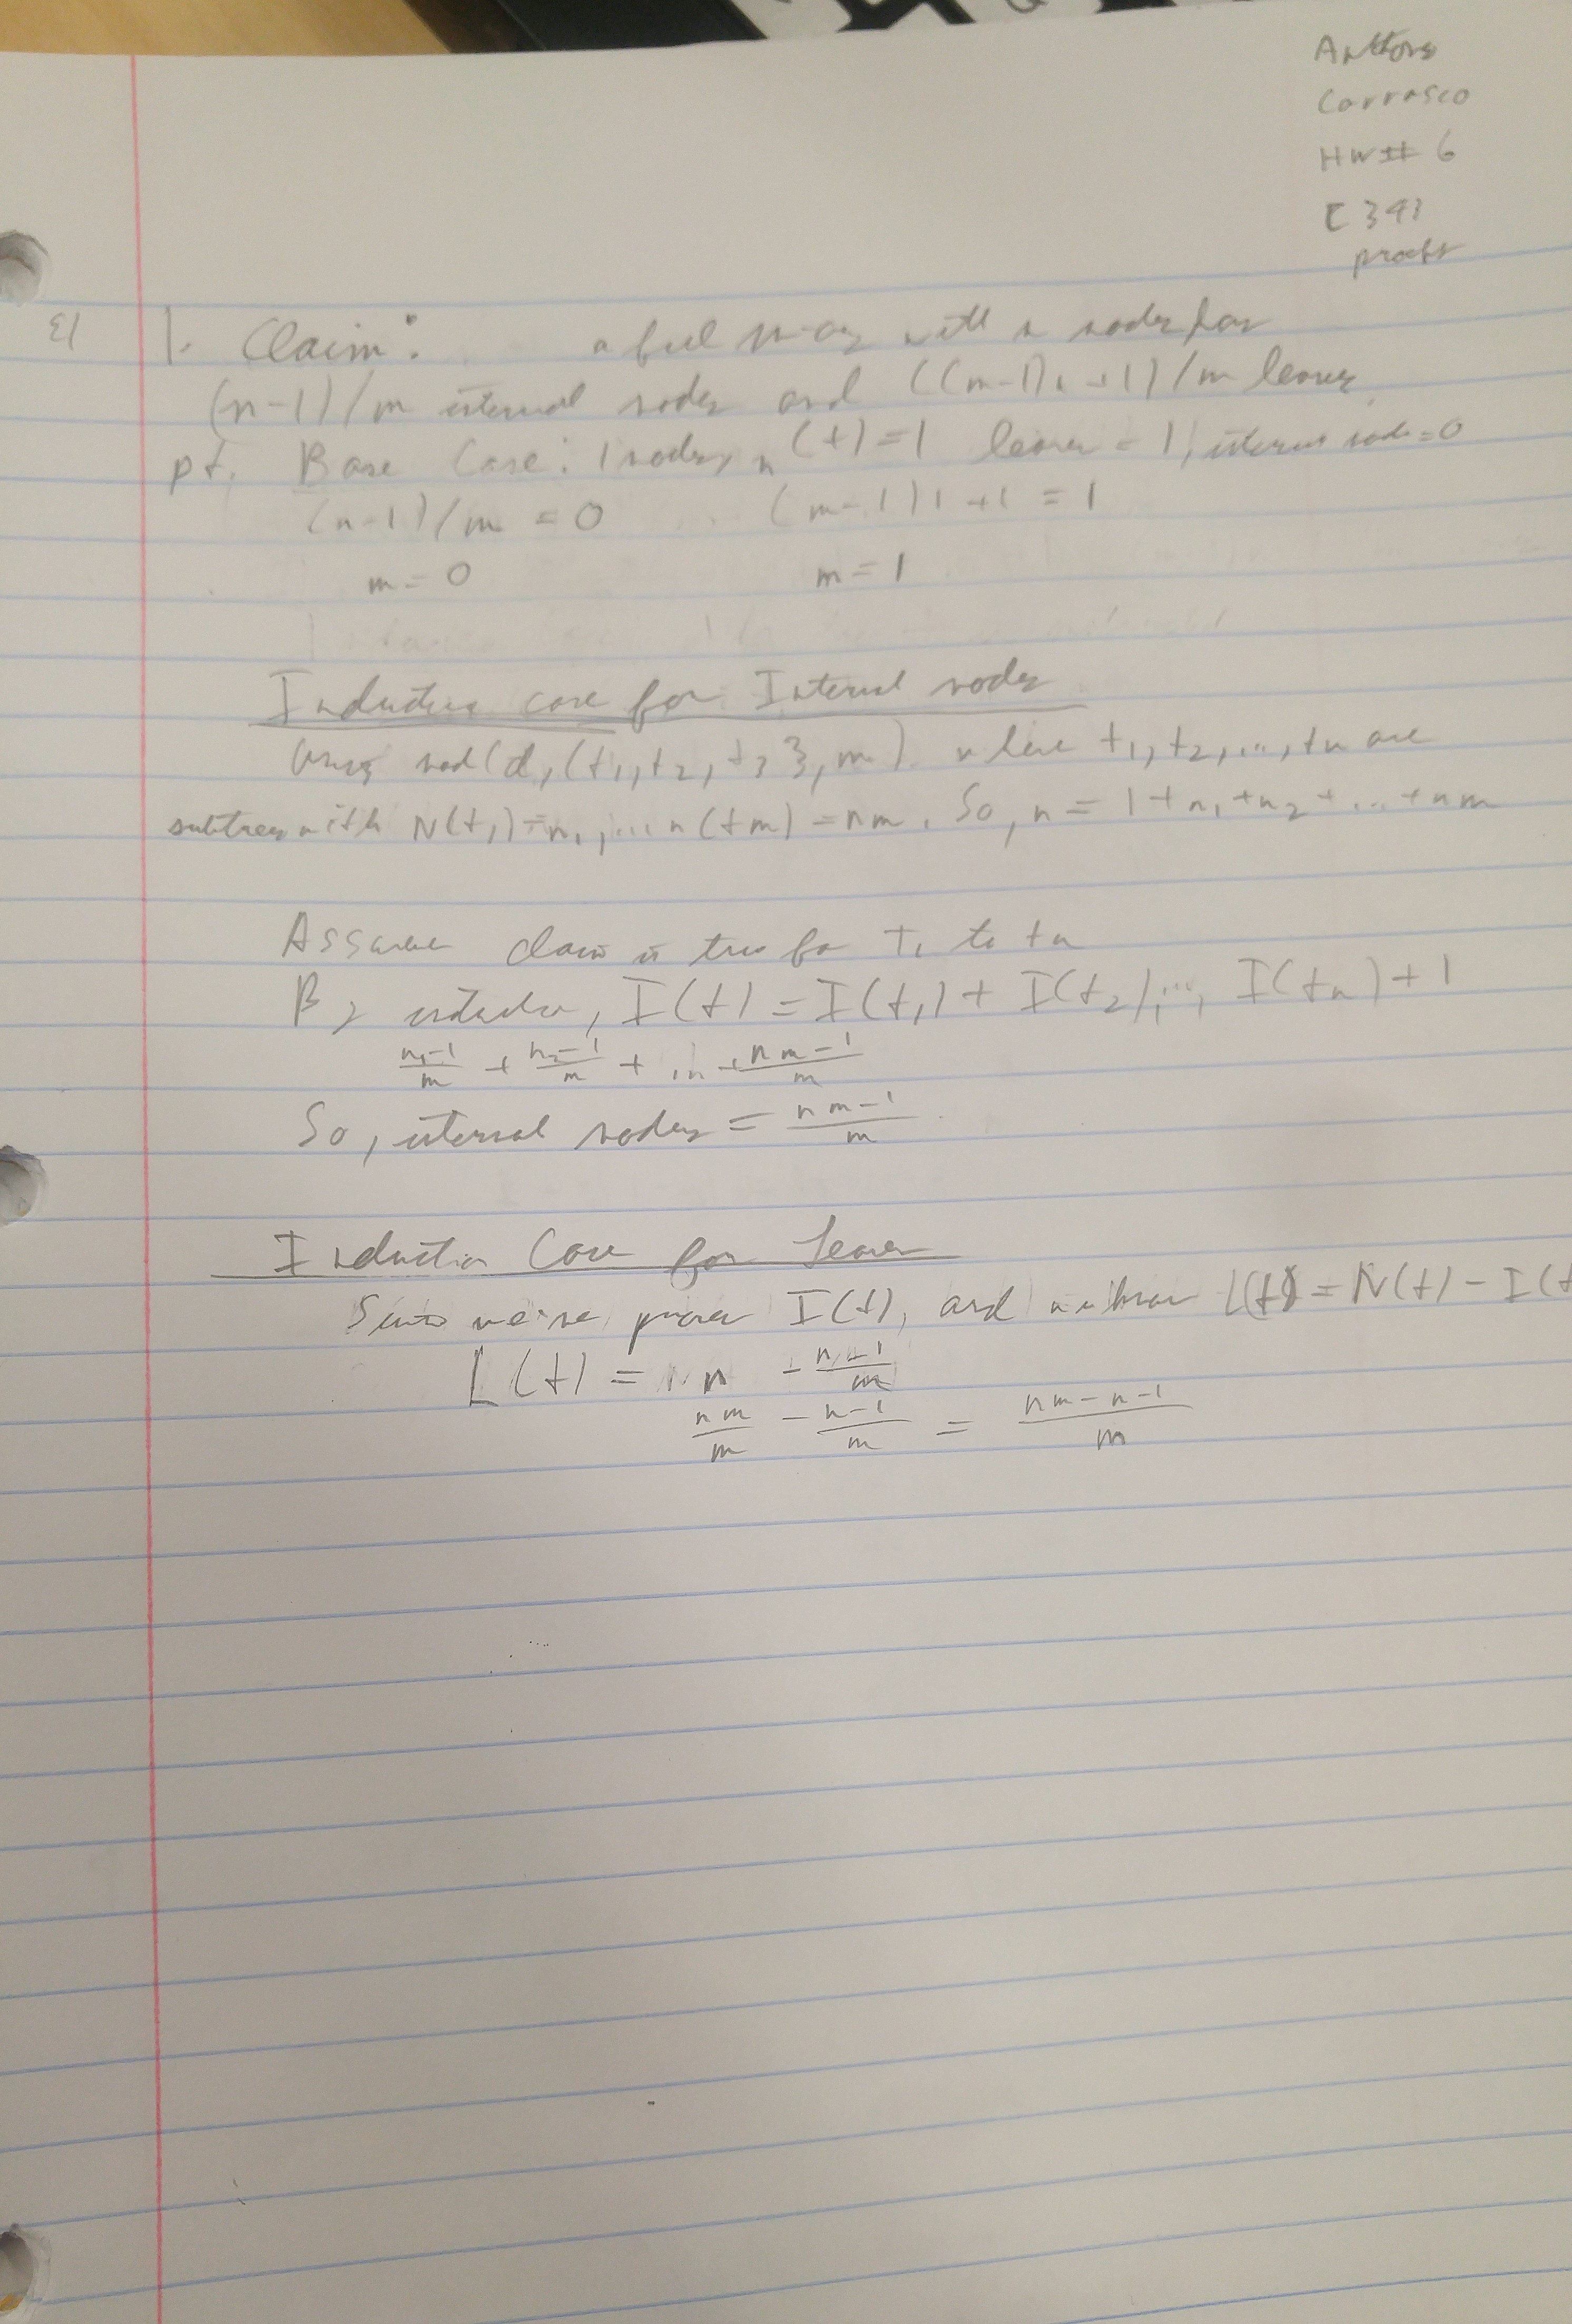 Anthony
Carrasco
HW# 6
C 343
proofs
E1
1. Claim: a full m-ary with n nodes has
(n-1)/m internal nodes and ((m-1)n+1)/m leaves
pf. Base Case: 1 node, n(t)=1 leaves = 1, internal node=0
(n-1)/m = 0 (m-1)1+1 = 1
m = 0 m = 1
Induction case for Internal nodes
Using nod(d, (t1, t2, t3 }, m) where t1, t2, ..., tn are
subtrees with N(t1)=n1, ... n(tm) = nm. So, n = 1+n1+n2+...+nm
Assume claim is true for T1 to tn
By induction, I(t) = I(t1) + I(t2), ..., I(tn) + 1
n1-1/m + n2-1/m + ... + nm-1/m
So, internal nodes = nm-1/m
Induction Case for Leaves
Since we've proven I(t), and we know L(t) = N(t) - I(t
L(t) = n - n-1/m
nm/m - n-1/m = nm-n-1/m